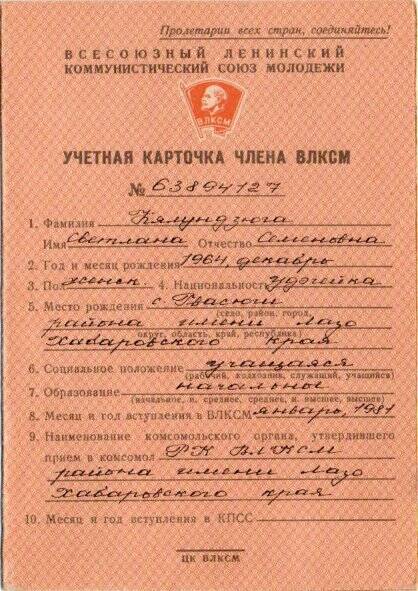 Пролетарии всех стран, соединяйтесь!
ВСЕСОЮЗНЫЙ ЛЕНИНСКИЙ
КОММУНИСТИЧЕСКИЙ СОЮЗ МОЛОДЕЖИ
ВЛКСМ
УЧЕТНАЯ КАРТОЧКА ЧЛЕНА ВЛКСМ
№ 63894127
1. Фамилия Кялундзюга
Имя Светлана Отчество Семеновна
2. Год и месяц рождения 1964, декабрь
3. Пол женск 4. Национальность удэгейка
5. Место рождения с. Гвасюги
(село, район, город,
района имени Лазо
округ, область, край, республика)
Хабаровского края
6. Социальное положение учащаяся
(рабочий, колхозник, служащий, учащийся)
7. Образование начальны
(начальное, н. среднее, среднее, н. высшее, высшее)
8. Месяц и год вступления в ВЛКСМ январь, 1981
9. Наименование комсомольского органа, утвердившего
прием в комсомол РК ВЛКСМ
района имени Лазо
Хабаровского края
10. Месяц и год вступления в КПСС
ЦК ВЛКСМ